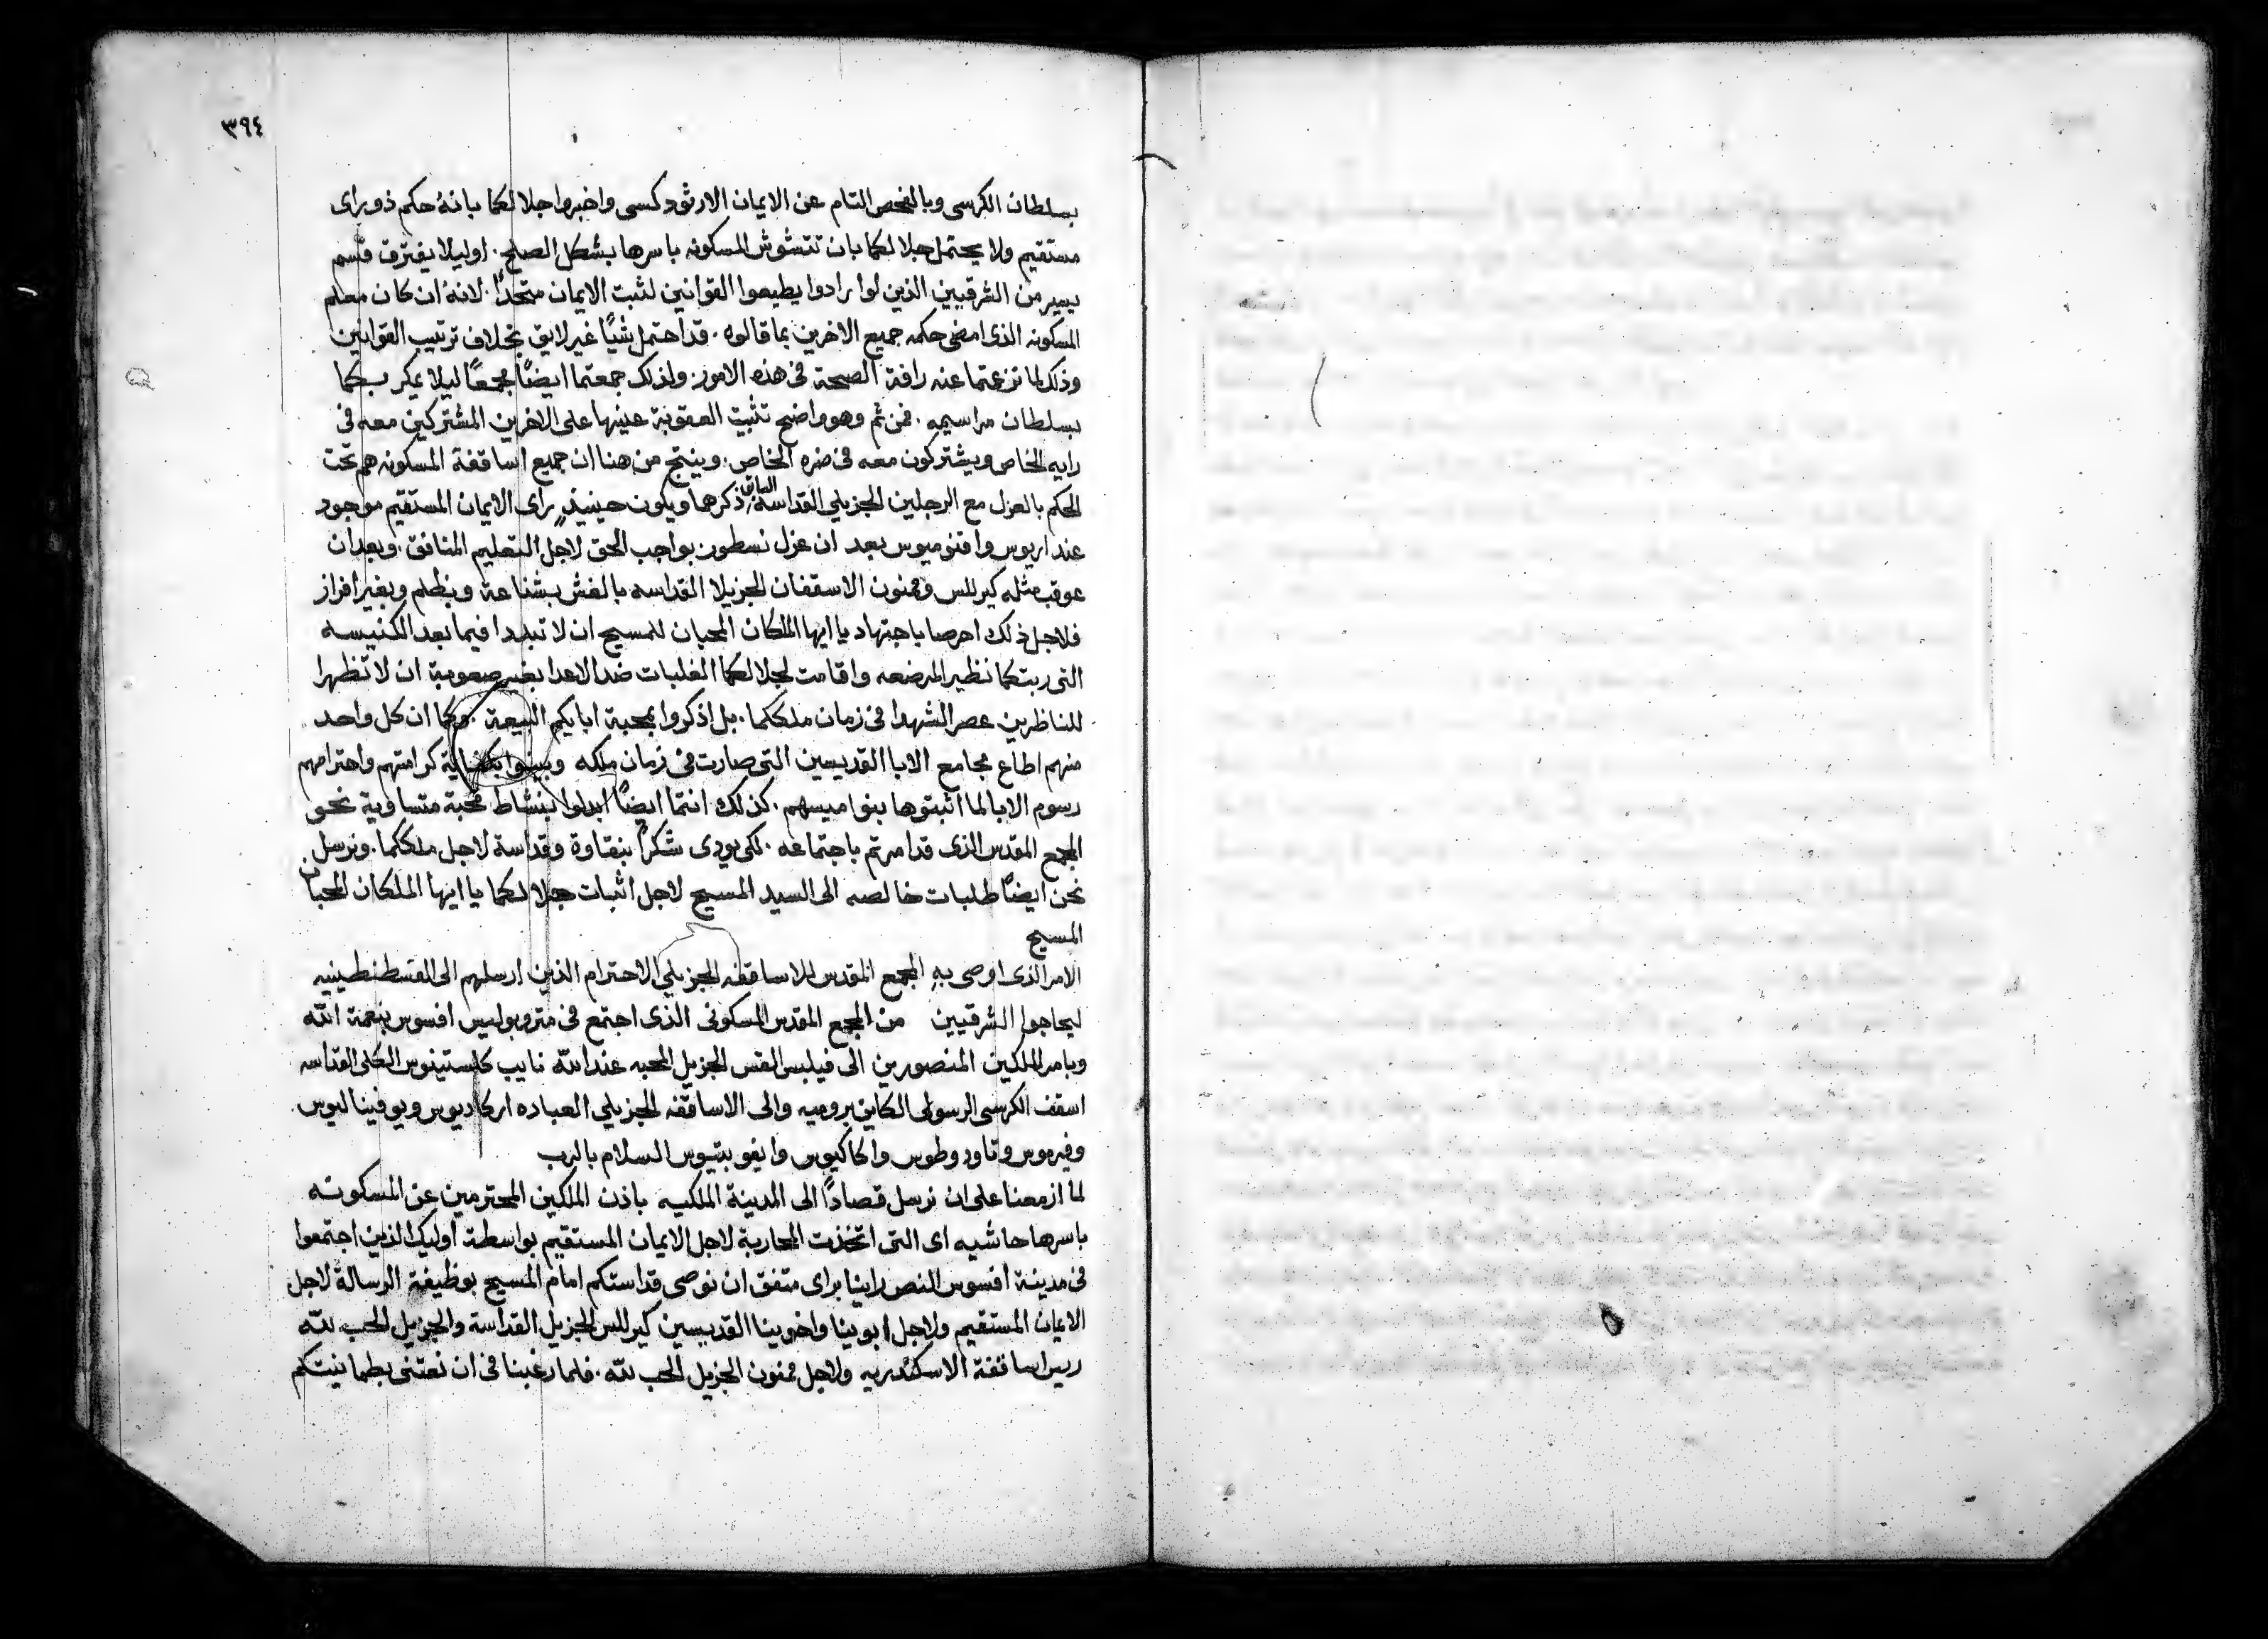 ٣٩٤
بسلطان الكرسى وبالفحص التام عن الايمان الارثودكسى واخبروا جلالتكما بانه حكم ذو راى
مستقيم ولا يحتمل جلالتكما بان تتشوش المسكونه باسرها بشكل الصلح. اوليلا يفترق قسم
يسير من الشرقيين الذين لو ارادوا يطيعوا القوانين لثبت الايمان متحدًا. لانهُ ان كان معلم
المسكونه الذى امضى حكمه جميع الاخرين بما قالوه. قد احتمل شيًا غير لايق بخلاف ترتيب القوانين
وذلك لما نزعتما عنه رافة الصحة فى هذه الامور. ولذلك جمعتما ايضًا مجمعًا ليلا يمكر بكما
بسلطان مراسيمه. فمن ثم وهو واضح تثبيت العقوبة عينها على الاخرين المشتركين معه فى
رايه الخاص ويشتركون معه فى ضره الخاص. وينتج من هنا ان جميع اساقفة المسكونه هم تحت
الحكم بالعزل مع الرجلين الجزيلي القداسة السابق ذكرهما ويكون حينيذٍ راى الايمان المستقيم موجود
عند اريوس وافنوميوس بعد ان عزل نسطور بواجب الحق لاجل التعليم المنافق. وبعد ان
عوقب مثله كيرللس وممنون الاسقفان الجزيلا القداسه بالغش بشناعة وبظلم وبغير افراز
فلاجل ذلك احرصا باجتهاد يا ايها الملكان المحبان للمسيح ان لا تبددا فيما بعد الكنيسه
التى ربتكما نظير المرضعه واقامت لجلالتكما الغلبات ضد الاعدا بغير صعوبة ان لا تظهرا
للناظرين عصر الشهدا فى زمان ملككما. بل اذكروا بمحبة ابايكم البيعة. وكما ان كل واحد
منهم اطاع مجامع الابا القديسين التى صارت فى زمان ملكه وبينوا بكفاية كرامتهم واحترامهم
رسوم الابا لما اثبتوها بنواميسهم. كذلك انتما ايضًا ابدلوا بنشاط محبة متساوية نحو
المجمع المقدس الذى قد امرتم باجتماعه. لكى يودى شكرًا بنقاوة وقداسة لاجل ملككما. ونرسل
نحن ايضًا طلبات خالصه الى السيد المسيح لاجل اثبات جلالتكما يا ايها الملكان المحبان
المسيح
الامر الذى اوصى بهِ المجمع المقدس للاساقفه الجزيلي الاحترام الذين ارسلهم الى القسطنطينيه
ليحاجوا الشرقيين من المجمع المقدس المسكونى الذى اجتمع فى متروبوليس افسوس بنعمة الله
وبامر الملكين المنصورين الى فيلبس القس الجزيل المحبه عند الله نايب كلستينوس الكلى القداسه
اسقف الكرسى الرسولى الكاين برومية والى الاساقفه الجزيلي العباده اركاديوس ويوفيناليوس
وفيرموس وتاودوطوس واكاكيوس وايفوبتيوس السلام بالرب
لما ازمعنا على ان نرسل قصادًا الى المدينة الملكيه باذن الملكين المحترمين عن المسكونه
باسرها حاشيه اى التى اتخذت المحاربة لاجل الايمان المستقيم بواسطة اوليك الذين اجتمعوا
فى مدينة افسوس النص راينا براى متفق ان نوصى قداستكم امام المسيح بوظيفة الرسالة لاجل
الايمان المستقيم ولاجل ابوينا واخوينا القديسين كيرللس الجزيل القداسة والجزيل الحب لله
رييس اساقفة الاسكندريه ولاجل ممنون الجزيل الحب لله. فلما رغبنا فى ان نعتنى بطمانينتكم